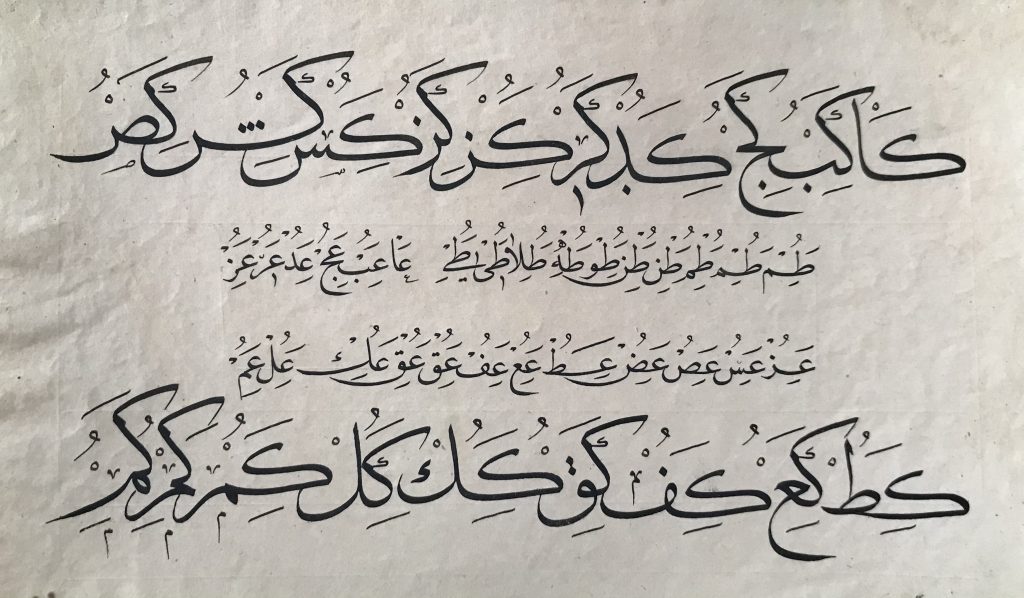 كا كب كج كد كر كز كر كس كش كص
طم طم طم طن طن طو طه طلا طى طے عا عب عج عد عر عز
عز عس عص عض عط عع عف عق عق علك عل عم
كط كع كف كق كلك كل كم كم كم